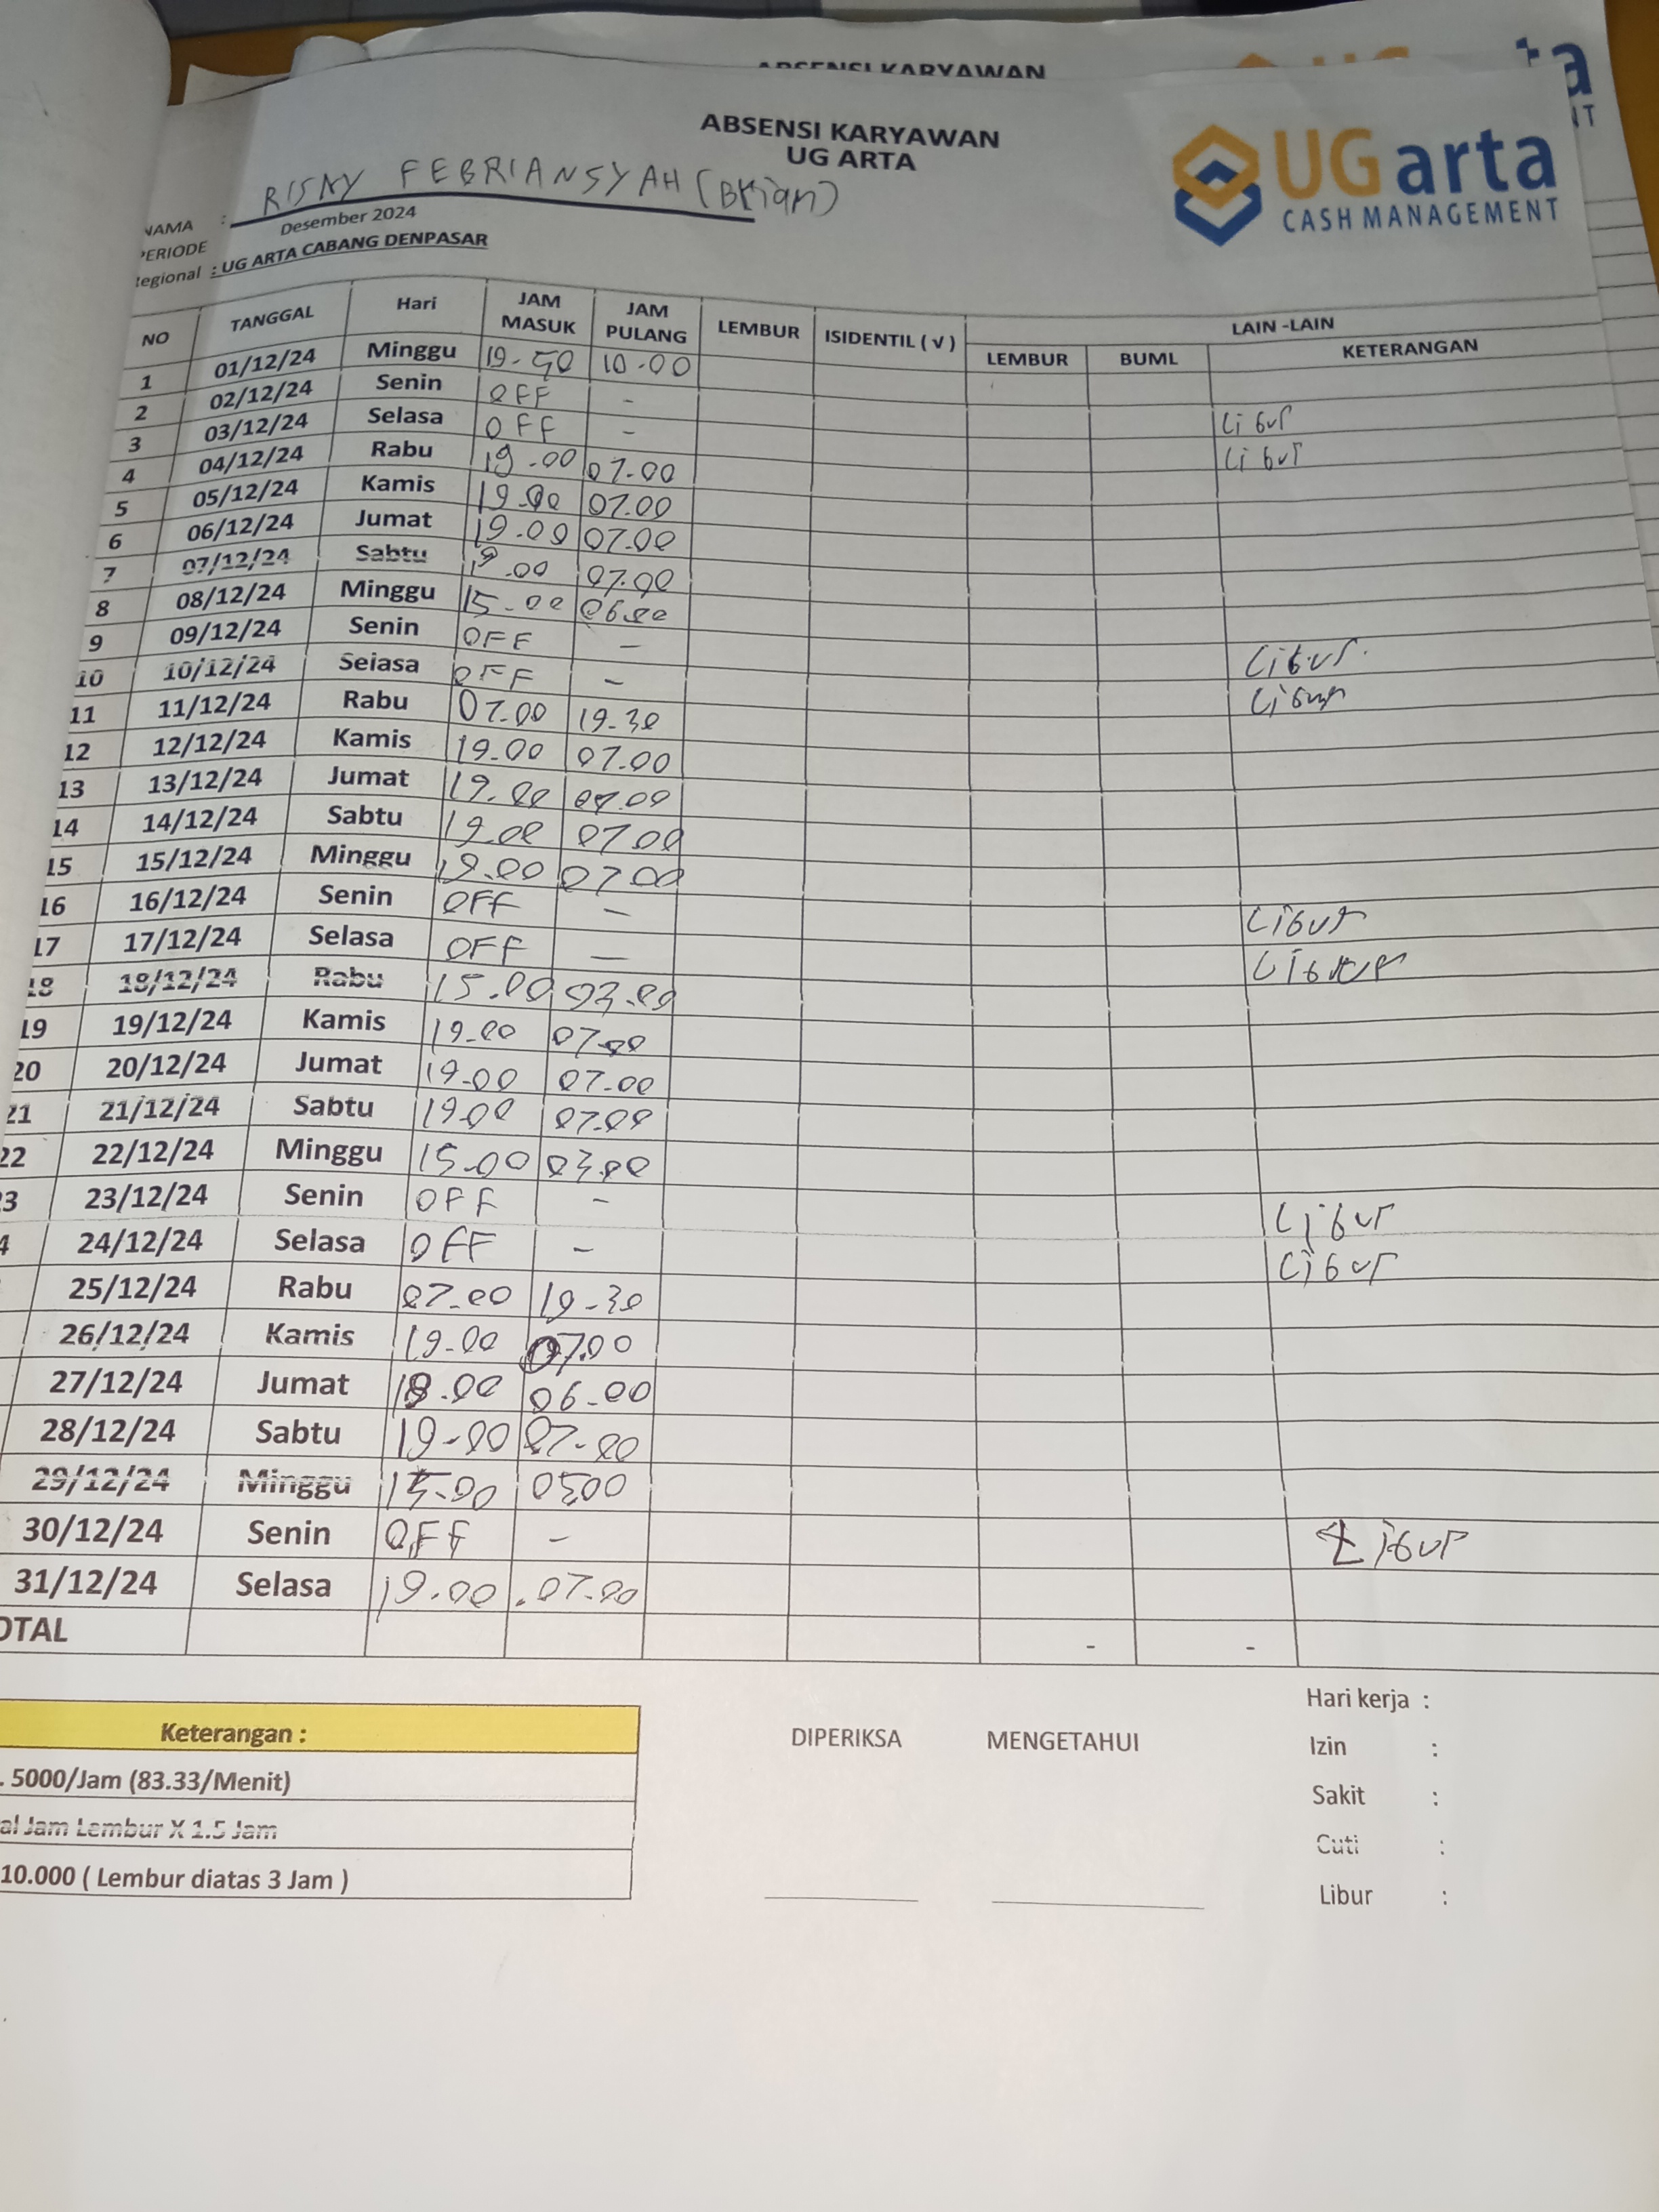 ABSENSI KARYAWAN
ABSENSI KARYAWAN
UG ARTA
UGarta
CASH MANAGEMENT
NAMA : FEBRIANSYAH (BRian)
PERIODE Desember 2024
Regional : UG ARTA CABANG DENPASAR
NO TANGGAL Hari JAM MASUK JAM PULANG LEMBUR ISIDENTIL ( √ ) LAIN -LAIN
LEMBUR BUML KETERANGAN
1 01/12/24 Minggu 19-50 10.00
2 02/12/24 Senin OFF - Libur
3 03/12/24 Selasa OFF - Libur
4 04/12/24 Rabu 19.00 07.00
5 05/12/24 Kamis 19.00 07.00
6 06/12/24 Jumat 19.00 07.00
7 07/12/24 Sabtu 19.00 07.00
8 08/12/24 Minggu 15-00 06.00
9 09/12/24 Senin OFF - Libur.
10 10/12/24 Selasa OFF - Libur
11 11/12/24 Rabu 07.00 19-30
12 12/12/24 Kamis 19.00 07.00
13 13/12/24 Jumat 19.00 07.00
14 14/12/24 Sabtu 19.00 07.00
15 15/12/24 Minggu 19.00 07.00
16 16/12/24 Senin OFF - Libur
17 17/12/24 Selasa OFF - Libur
18 18/12/24 Rabu 15.00 03.00
19 19/12/24 Kamis 19-00 07-00
20 20/12/24 Jumat 19-00 07-00
21 21/12/24 Sabtu 19.00 07.00
22 22/12/24 Minggu 15-00 03.00
3 23/12/24 Senin OFF - Libur
4 24/12/24 Selasa OFF - Libur
25/12/24 Rabu 07-00 19-30
26/12/24 Kamis 19-00 07.00
27/12/24 Jumat 18.00 06-00
28/12/24 Sabtu 19-00 07-00
29/12/24 Minggu 15-00 0500
30/12/24 Senin OFF - Libur
31/12/24 Selasa 19.00 .07-00
OTAL - -
Keterangan :
. 5000/Jam (83.33/Menit)
al Jam Lembur X 1.5 Jam
10.000 ( Lembur diatas 3 Jam )
DIPERIKSA MENGETAHUI
Hari kerja :
Izin :
Sakit :
Cuti :
Libur :